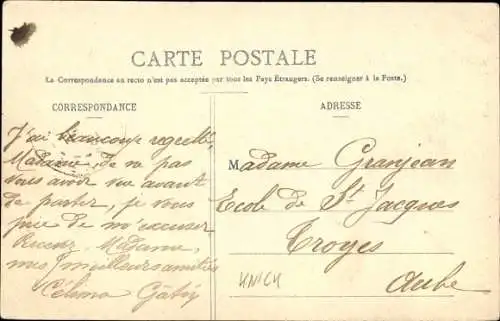 CARTE POSTALE
La Correspondance au recto n'est pas acceptée par tous les Pays Étrangers. (Se renseigner à la Poste.)
CORRESPONDANCE
J'ai beaucoup regretté,
Madame de ne pas
vous avoir vue avant
de partir, je vous
prie de m'excuser
Recevez Madame,
mes meilleurs amitiés
Célina
ADRESSE
Madame Granjean
Ecole de St Jacques
Troyes
Aube